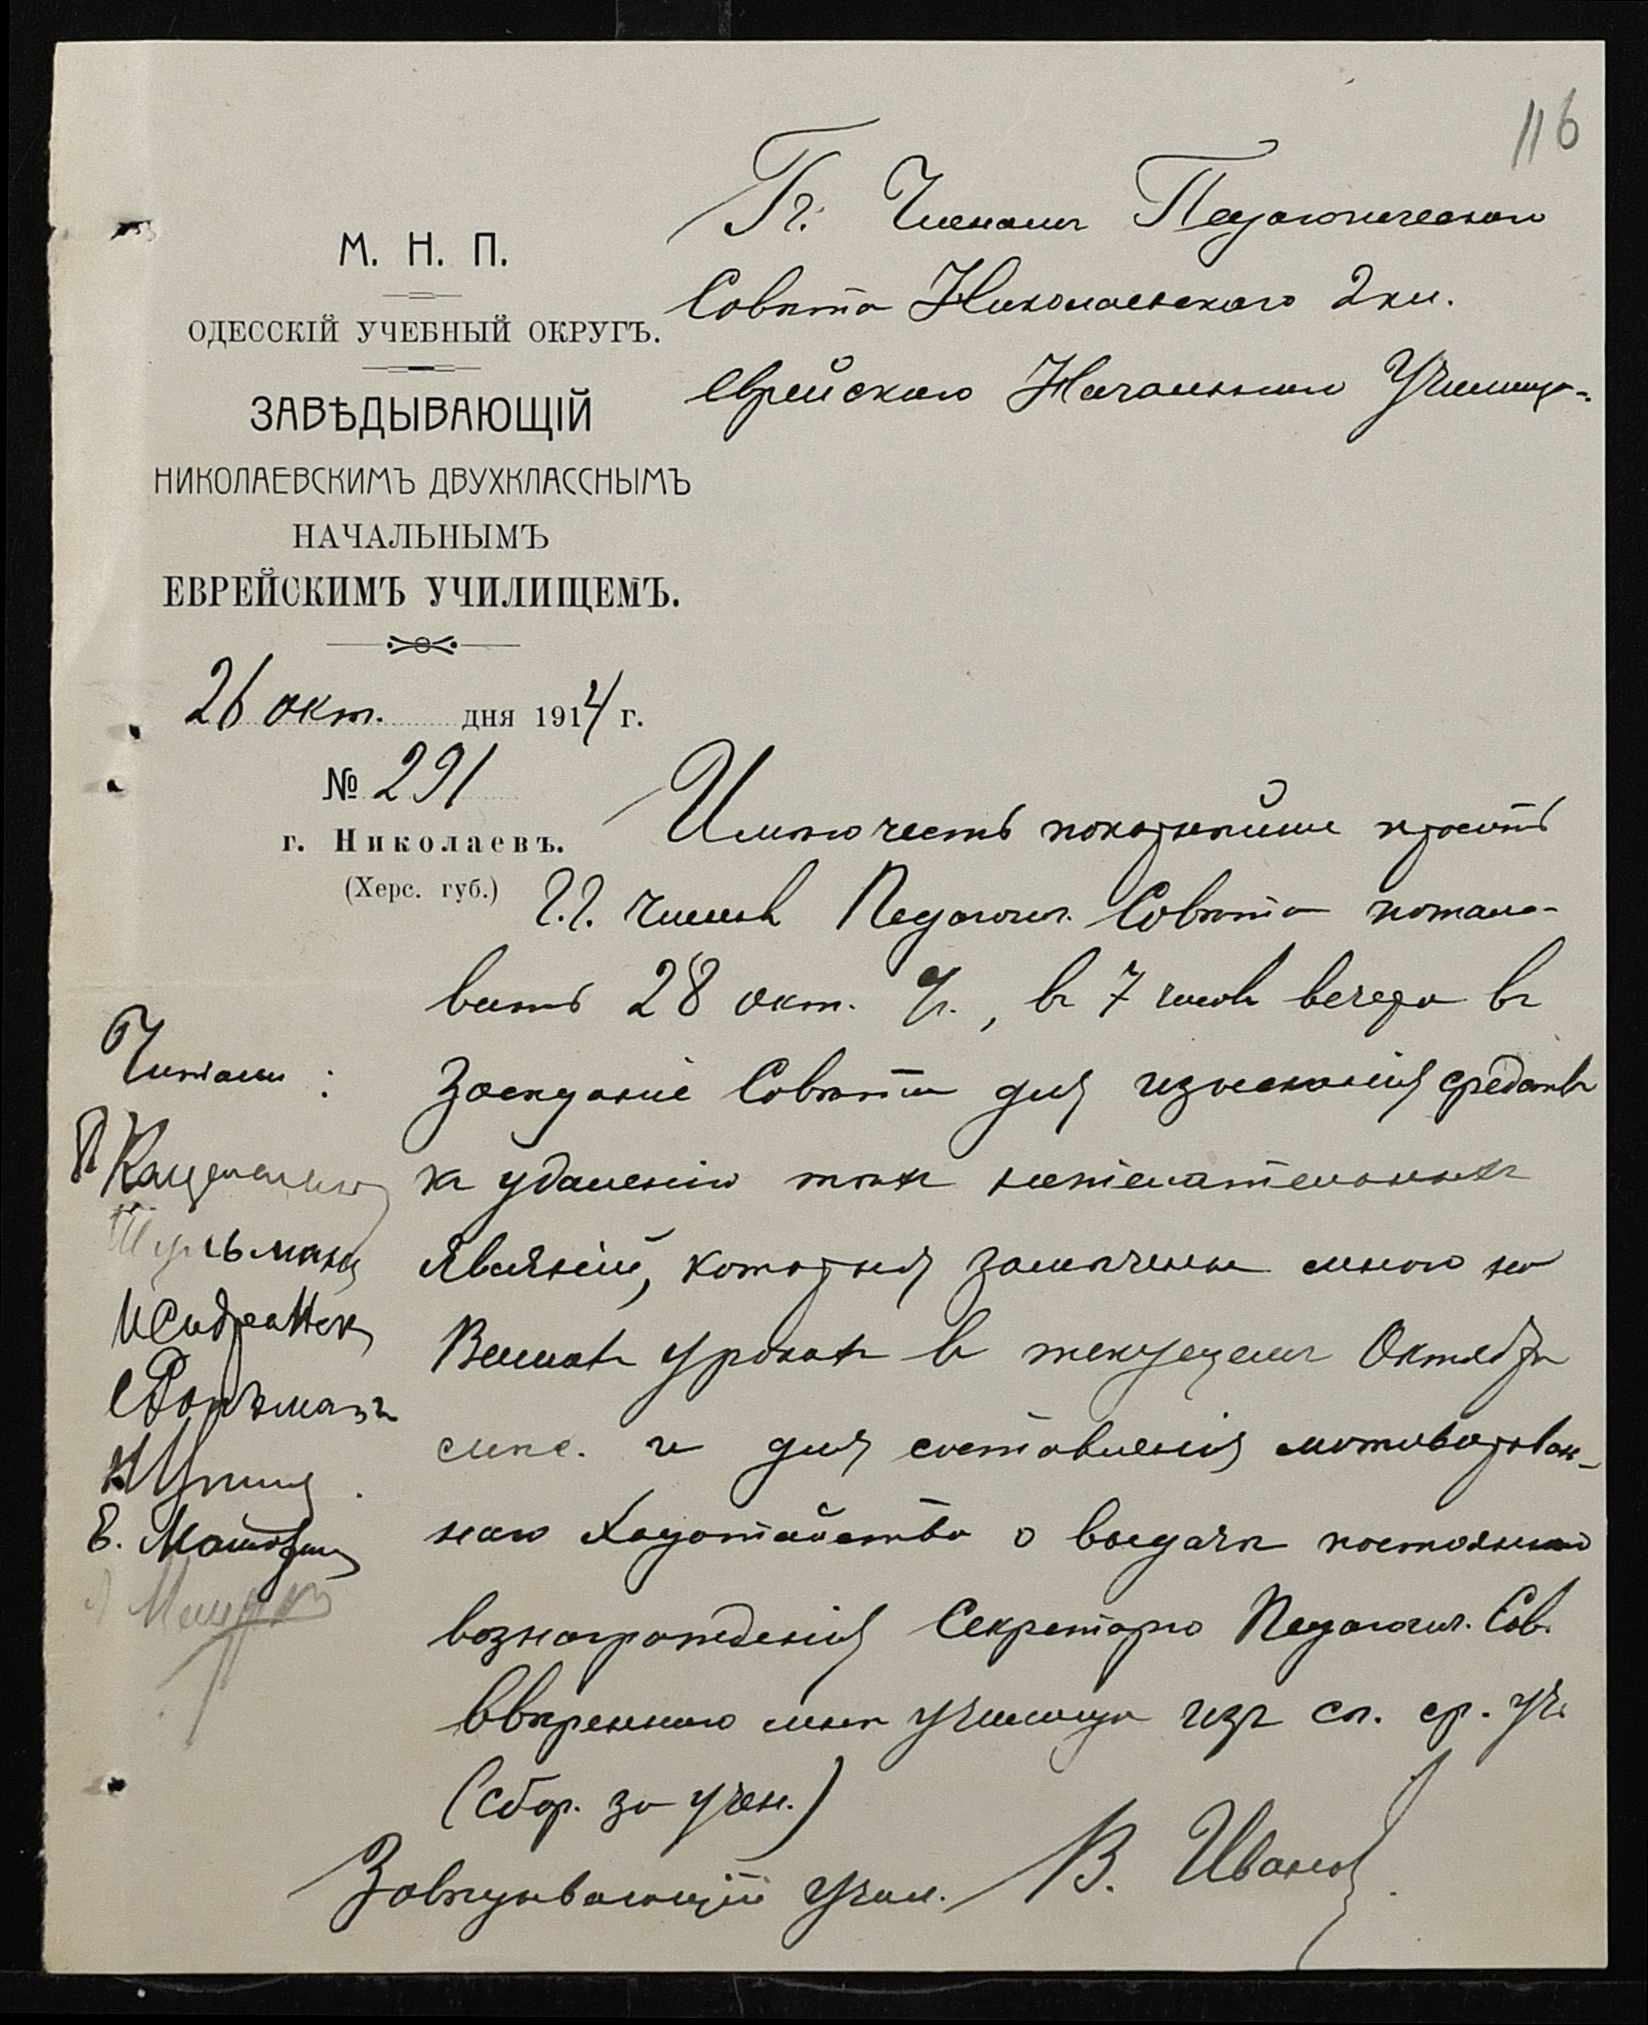 116
М. Н. П.
ОДЕССКІЙ УЧЕБНЫЙ ОКРУГЪ.
ЗАВѢДЫВАЮЩІЙ
НИКОЛАЕВСКИМЪ ДВУХКЛАССНЫМЪ
НАЧАЛЬНЫМЪ
ЕВРЕЙСКИМЪ УЧИЛИЩЕМЪ.
26 окт. дня 1914 г.
№ 291
г. Николаевъ.
(Херс. губ.)
Гг. Членамъ Педагогическаго
Совѣта Николаевскаго 2 кл.
еврейскаго Начальнаго Училища.
Имѣю честь покорнѣйше просить
г.г. членовъ Педагогич. Совѣта пожало-
вать 28 окт. с/г., въ 7 часовъ вечера въ
засѣданіе Совѣта для изысканія средствъ
къ удаленію тѣхъ нежелательныхъ
явленій, которыя замѣчены мною на
Вашихъ урокахъ въ текущемъ Октябрѣ
мѣс. и для составленія мотивирован-
наго ходатайства о выдачѣ постояннаго
вознагражденія Секретарю Педагогич. Сов.
ввѣреннаго мнѣ училища изъ сп. ср. уч.
(сбор. за учен.)
Завѣдывающій учил. В. Ивановъ
Читали: